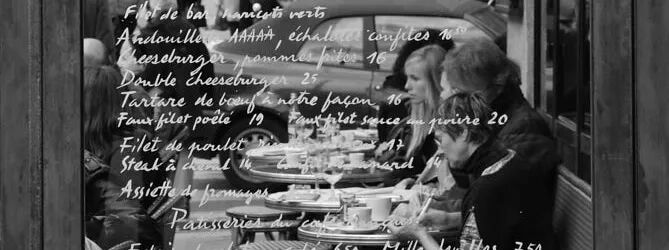 Filet de bar, haricots verts
Andouillette AAAAA, échalotes confites 16⁵⁰
Cheeseburger, pommes frites 16
Double cheeseburger 25
Tartare de bœuf à notre façon 16
Faux-filet poêlé 19 Faux-filet sauce au poivre 20
Filet de poulet 17
Steak à cheval 14 canard
Assiette de fromages
Patisseries du café
7.50